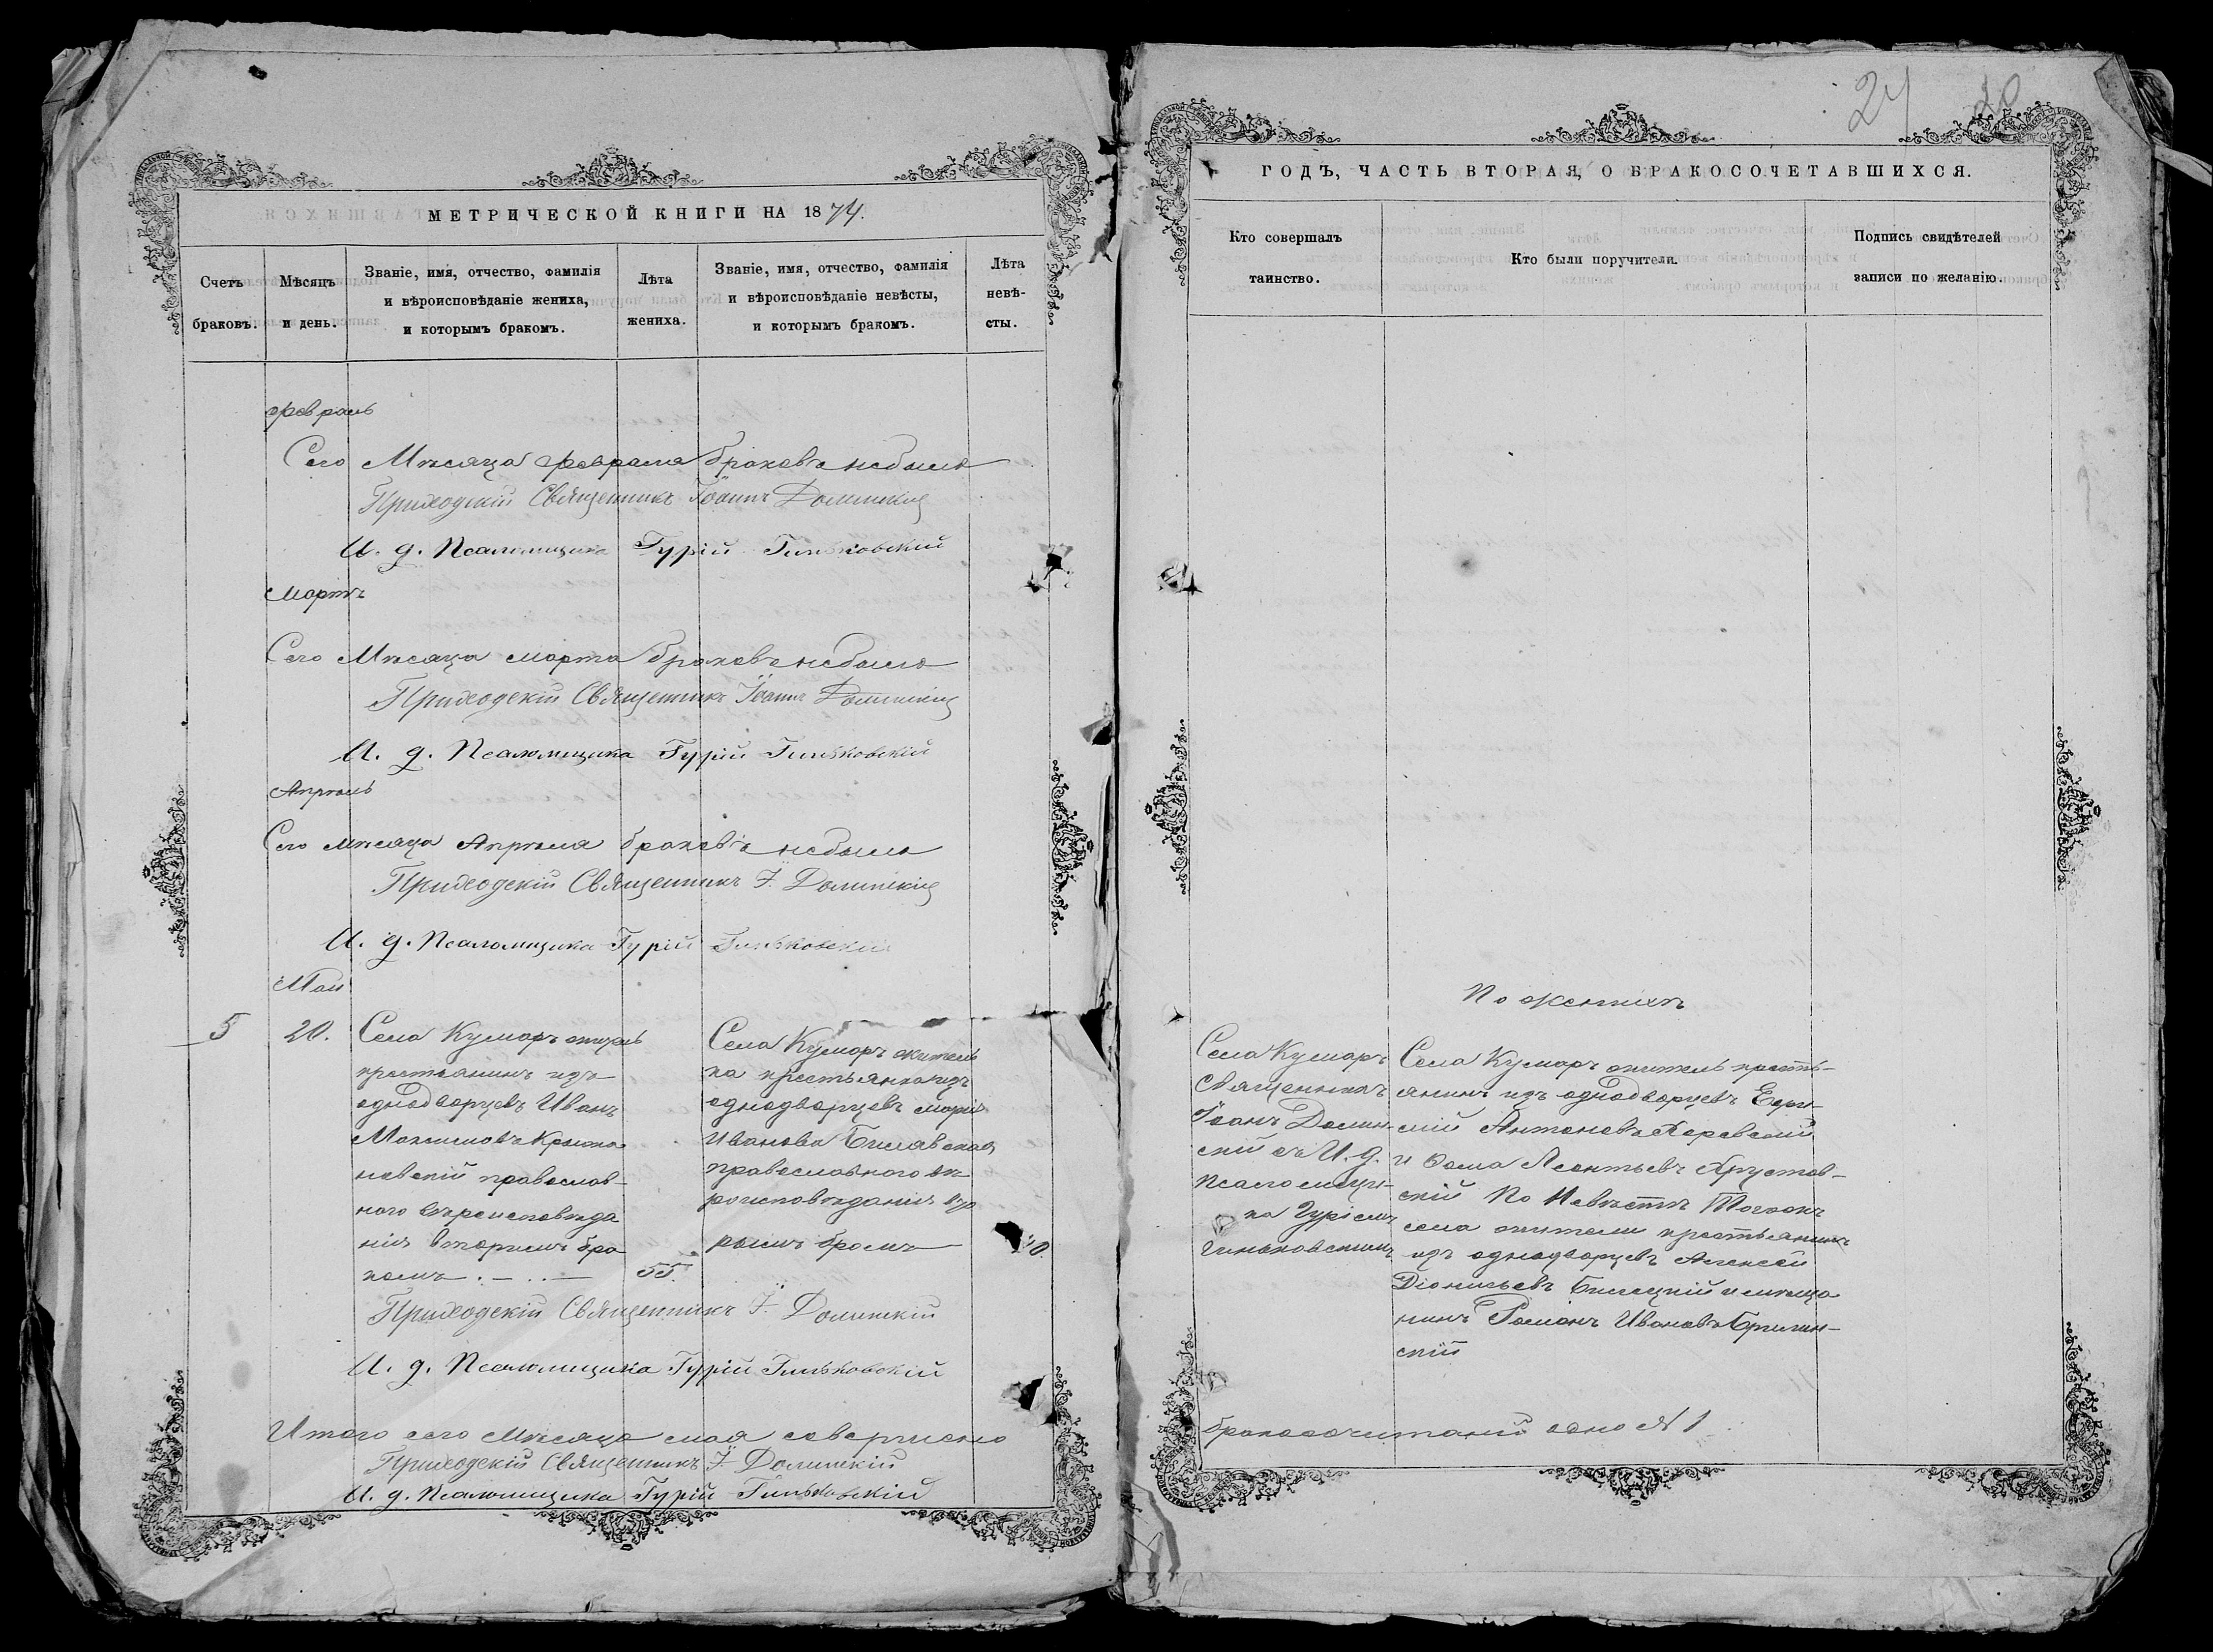 МЕТРИЧЕСКОЙ КНИГИ НА 1874.
Счетъ браковъ.
Мѣсяцъ и день.
Званіе, имя, отчество, фамилія и вѣроисповѣданіе жениха, и которымъ бракомъ.
Лѣта жениха.
Званіе, имя, отчество, фамилія и вѣроисповѣданіе невѣсты, и которымъ бракомъ.
Лѣта невѣ-
сты.
Февраль
Сего Мѣсяца Февраля браковъ небыло
Приходскій Священникъ Іоаннъ Долинскій
И. д. Псаломщика Гурій Гиньковскій
Мартъ
Сего Мѣсяца марта браковъ небыло
Приходскій Священникъ Іоаннъ Долинскій
И. д. Псаломщика Гурій Гиньковскій
Апрѣль
Сего мѣсяца Апрѣля браковъ небыло
Приходскій Священникъ І. Долинскій
И. д. Псаломщика Гурій Гиньковскій
Май
5
20.
Села Кумаръ житель
крестьянинъ изъ
однодворцевъ Иванъ
Максимовъ
новскій православ-
наго вѣроисповѣда
нія вторымъ бра
комъ
55.
Села Кумаръ жител
ка крестьянка изъ
однодворцевъ марія
Иванова Билявская
православнаго вѣ-
роисповѣданія вто
рымъ бракомъ
Приходскій Священникъ І. Долинскій
И. д. Псаломщика Гурій Гиньковскій
Итого сего Мѣсяца мая совершено
Приходскій Священникъ І. Долинскій
И. д. Псаломщика Гурій Гиньковскій
24 20
ГОДЪ, ЧАСТЬ ВТОРАЯ, О БРАКОСОЧЕТАВШИХСЯ.
Кто совершалъ
таинство.
Кто были поручители.
Подпись свидѣтелей
записи по желанію.
Села Кумаръ
Священникъ
Іоанъ Долин-
скій съ И. д.
псаломщи-
ка Гуріемъ
Гиньковскимъ
По женихѣ
Села Кумаръ житель кресть-
янинъ изъ однодворцевъ
Антоновъ
и Фома Леонтьевъ Хрустов-
скій По Невѣстѣ
села жители крестьянинъ
изъ однодворцевъ Алексѣй
Діонисьевъ Билецкій и мѣща
нинъ Романъ Ивановъ
скій
бракосочитаній одно № 1